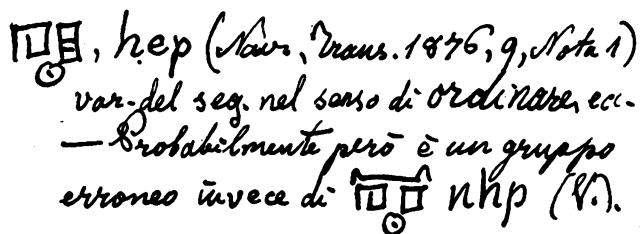 , hep (Nav., Trans. 1876, 9, Nota 1)
var. del seg. nel senso di ordinare, ecc.
— Probabilmente però è un gruppo
erroneo invece di nhp (V.).